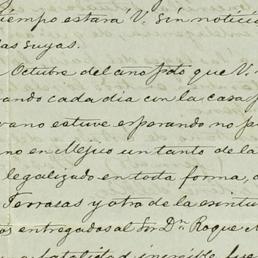 tiempo estará V. sin notici
las suyas.
Octubre del año ppdo que V.
rando cada dia con la casa p
rano estuve esperando no p
no en Méjico un tanto de la
legalizado en toda forma, d
Terrazas y otro de la escritu
os entregados al Sor Dn Roque M
fatalidad increible fue